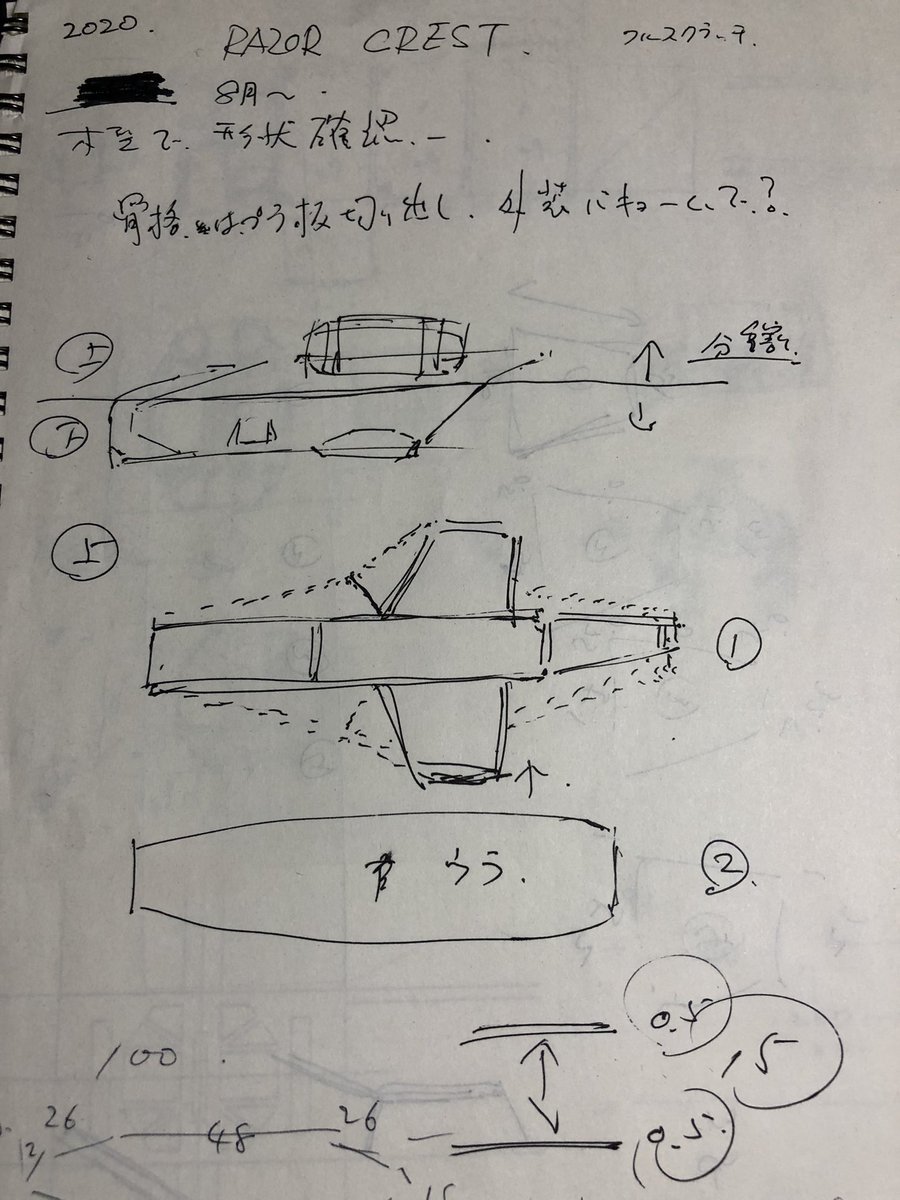 2020.
RAZOR CREST.
フルスクラッチ.
8月〜
木型で. 形状確認.ー.
骨格.はプラ板切り出し. 外装バキュームで?
上
分割.
下
上
1
うら.
2.
0.5
100.
15
26
48
26
0.5
12/
15